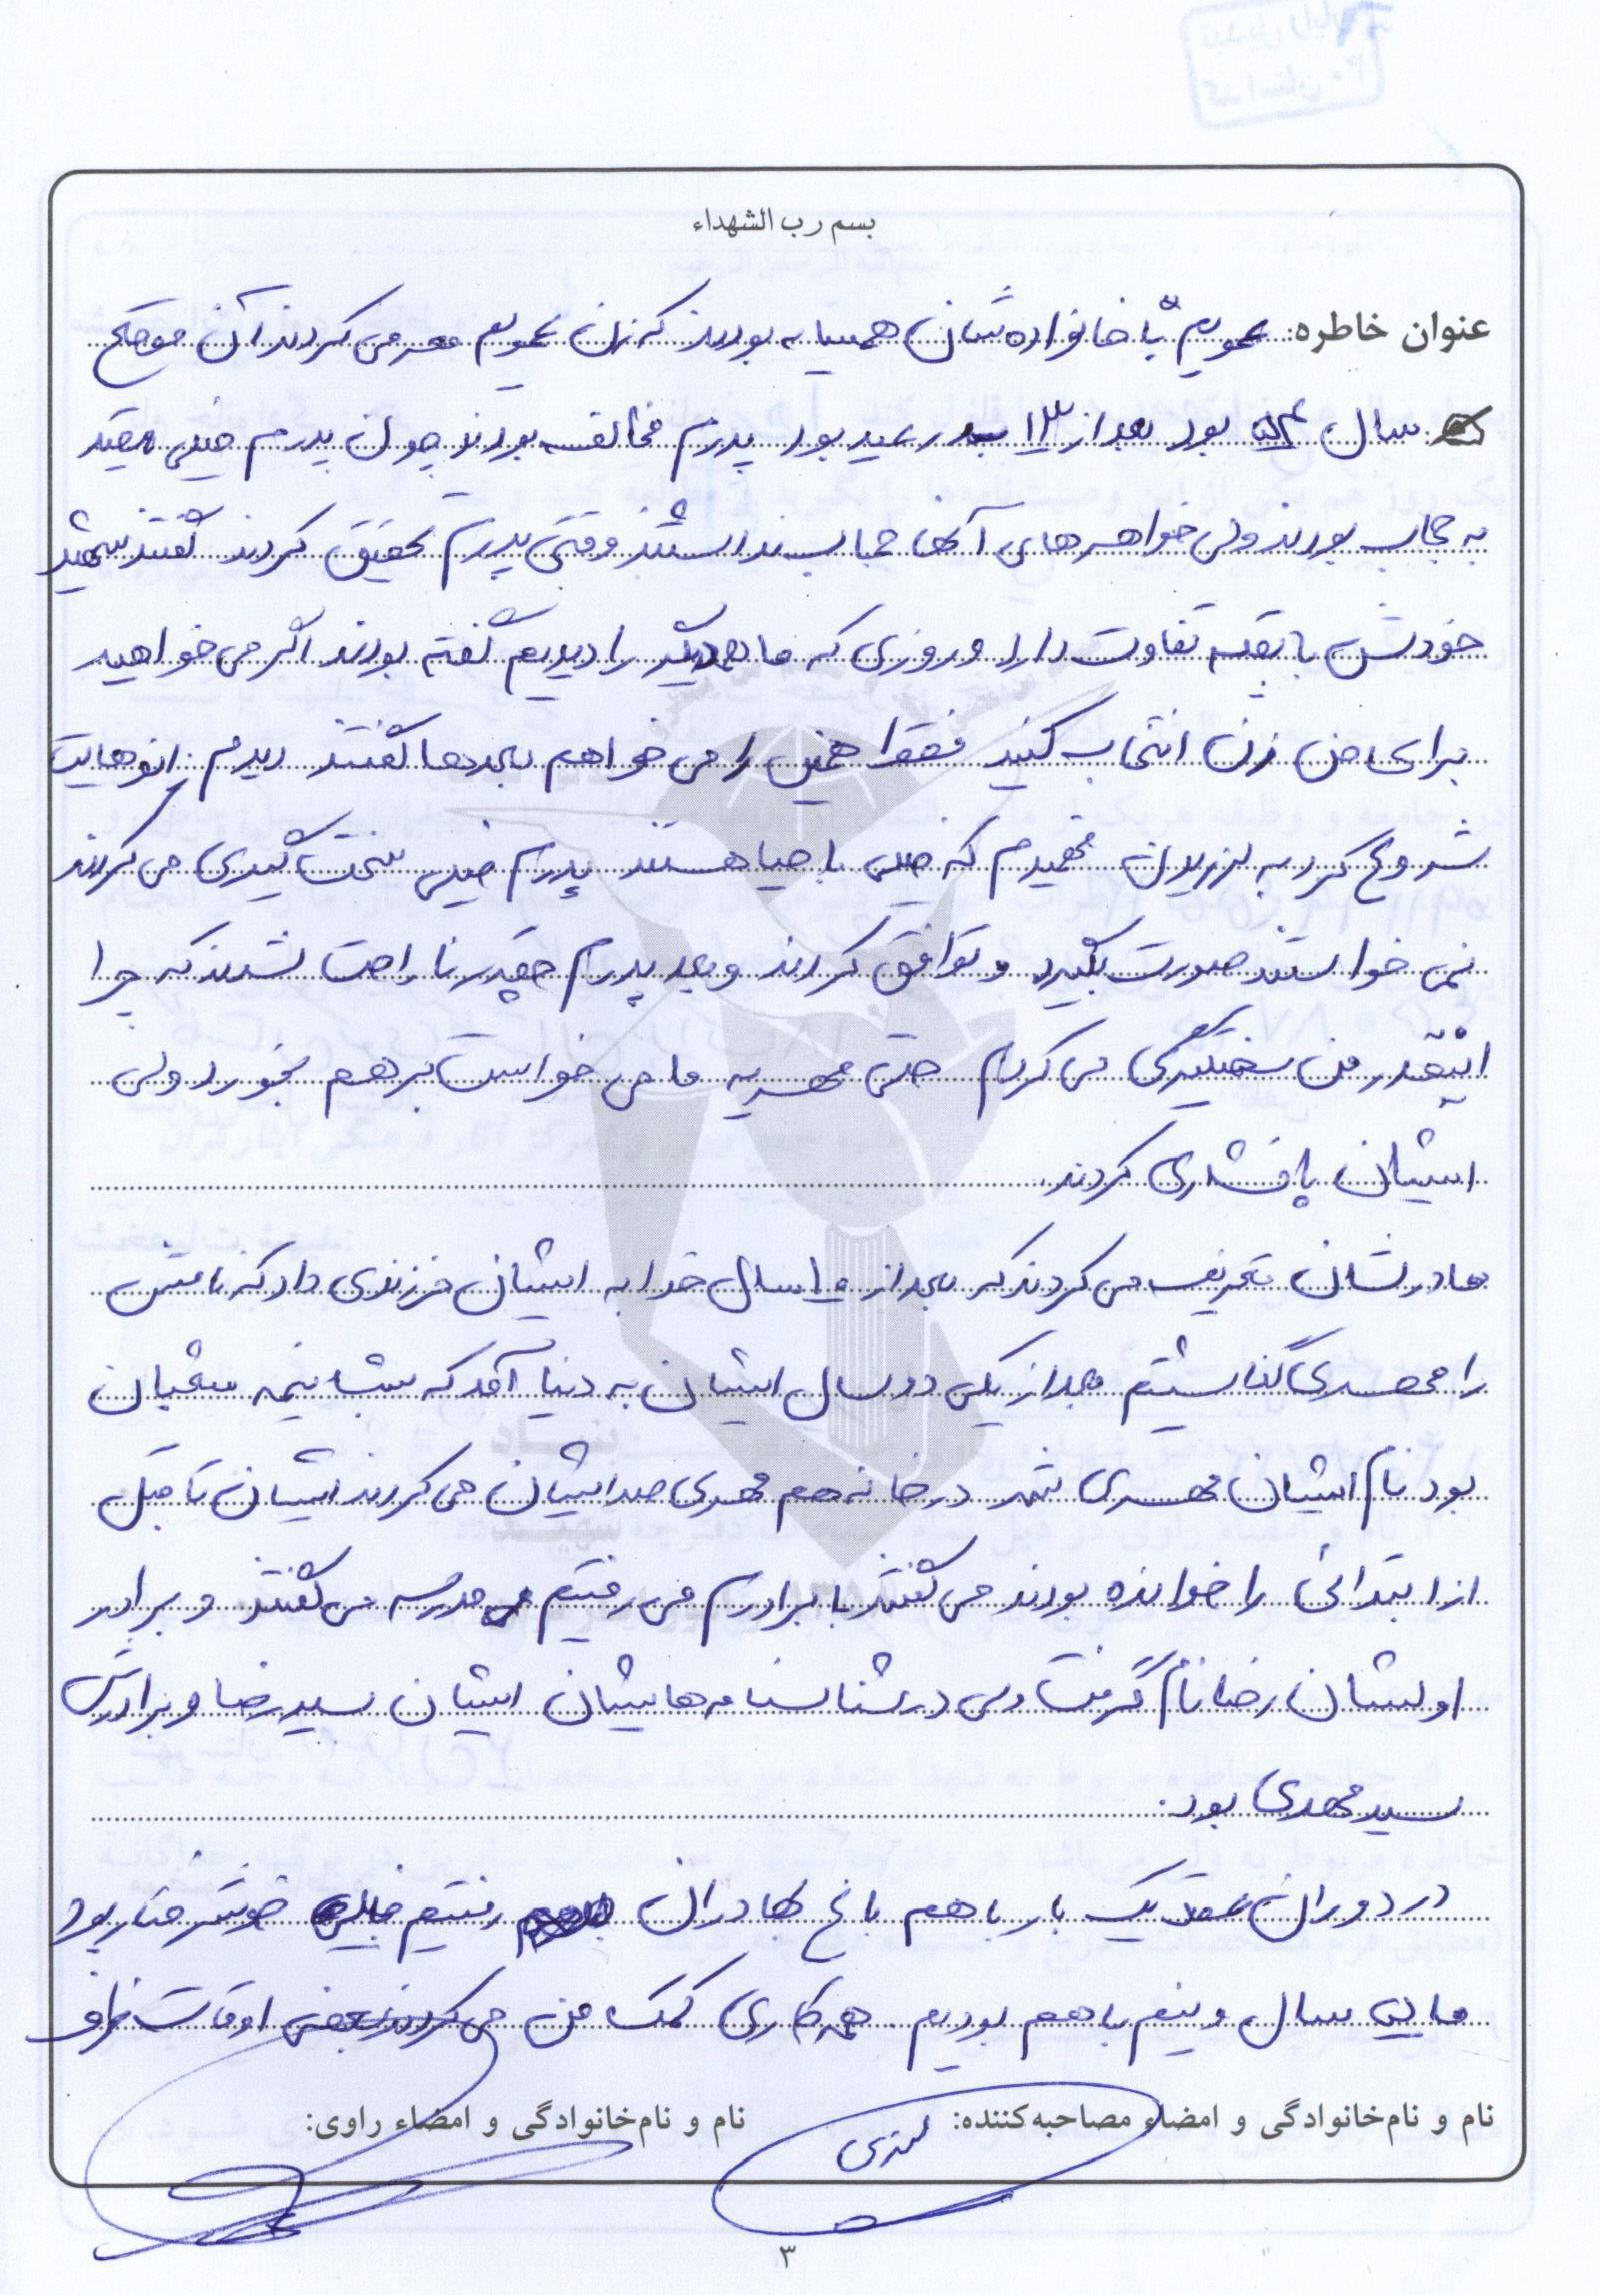 بسم رب الشهداء
عنوان خاطره: عمویم با خانواده شان همسایه بودند که زن عمویم معرفی کردند آن موقع
سال بود بعد از ۱۳ بدر عید بود پدرم مخالف بودند چون پدرم خیلی مقید
به حجاب بودند ولی خواهرهای آنها حجاب نداشتند وقتی پدرم تحقیق کردند گفتند شهید
خودش با بقیه تفاوت دارد و روزی که ما همدیگر را دیدیم گفته بودند اگر می خواهید
برای من زن انتخاب کنید فقط همین را می خواهم بعدها گفتند دیدم زانوهایت
شروع کرد به لرزیدن فهمیدم که خیلی با حیا هستند پدرم خیلی سخت گیری می کردند
نمی خواستند صورت بگیرد و توافق کردند و بعد پدرم چقدر ناراحت شدند که چرا
اینقدر من سختگیری می کردم حتی مهریه ما می خواست بر هم بخورد ولی
ایشان پافشاری کردند.
مادرشان تعریف می کردند که بعد از سال خدا به ایشان فرزندی داد که نامش
را مهدی گذاشتیم بعد از یکی دو سال ایشان به دنیا آمد که شب نیمه شعبان
بود نام ایشان مهدی شد در خانه هم مهدی صدا ایشان می کردند ایشان تا قبل
از ابتدائی را خوانده بودند می گفتند با برادرم می رفتیم مدرسه می گفتند و برادر
اولشان رضا نام گرفت ولی در شناسنامه هایشان ایشان سید رضا و برادرش
سید مهدی بود.
در دوران عقد یک بار با هم باغ بهادران رفتیم خیلی خوش رفتار بود
ما سال و نیم با هم بودیم. همه کاری کمک من می کردند بعضی اوقات ظرف
نام و نام‌خانوادگی و امضاء مصاحبه‌کننده:
نام و نام‌خانوادگی و امضاء راوی:
۳